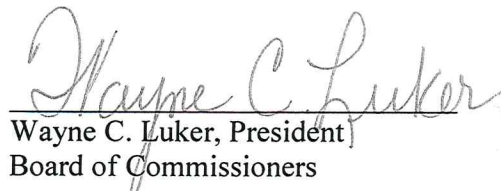 Wayne C Luker
Wayne C. Luker, President
Board of Commissioners